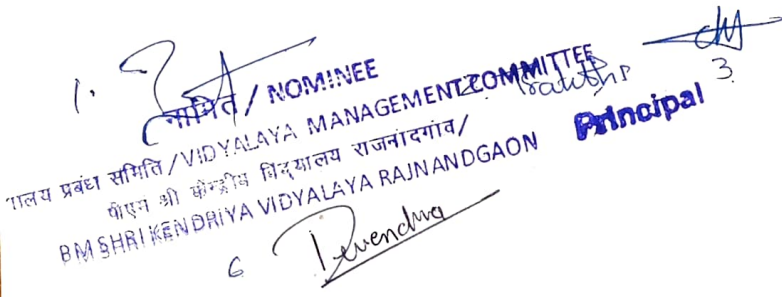 1.
नामित / NOMINEE
ालय प्रबंध समिति / VIDYALAYA MANAGEMENT COMMITTEE
2.
3
Principal
पीएम श्री केन्द्रीय विद्यालय राजनांदगांव/
BM SHRI KENDRIYA VIDYALAYA RAJNANDGAON
6 Devendra